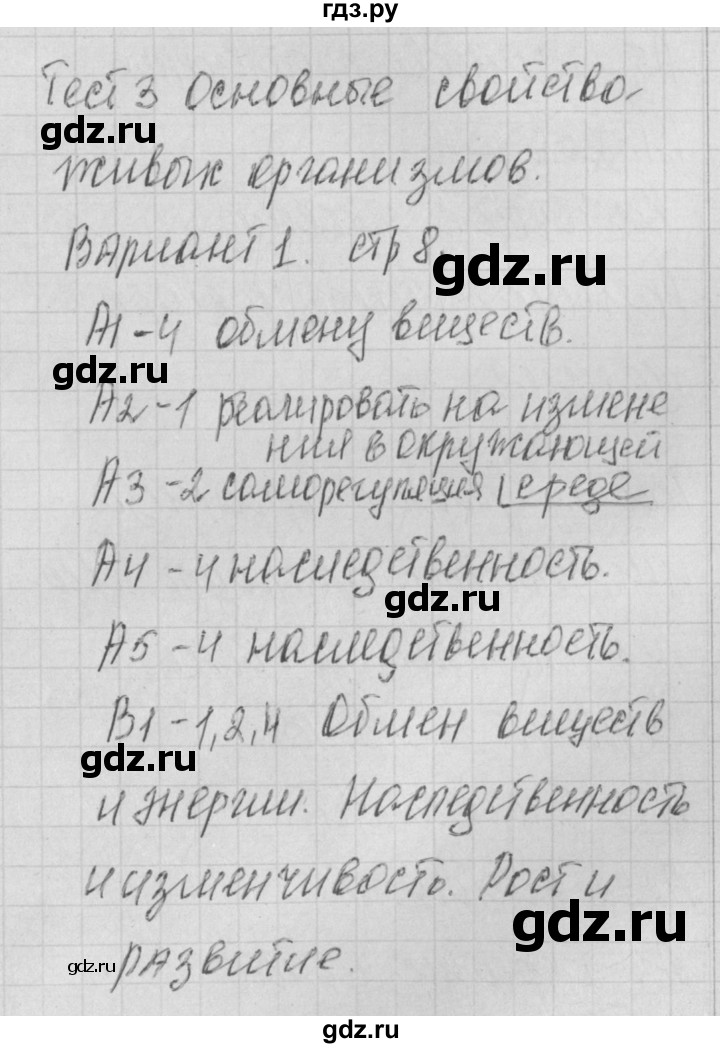 гдз.ру
Тест 3 основные свойства
gdz.ru
живых организмов.
Вариант 1. стр 8.
gdz.ru
А1-4 обмену веществ.
gdz.ru
А2-1 реагировать на измене
ния в окружающей
А3-2 саморегуляция среде
А4-4 наследственность.
gdz.ru
А5-4 наследственность.
В1-1,2,4 Обмен веществ
gdz.ru
и энергии. Наследственность
и изменчивость. Рост и
gdz.ru
gdz.ru развитие.
gdz.ru